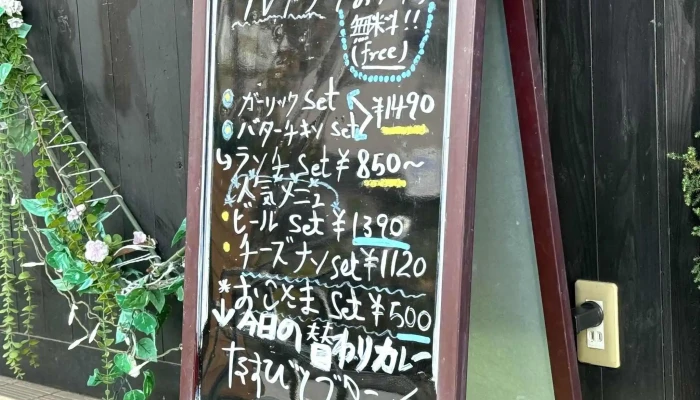 無料!!
(free)
ガーリック set
バターチキン set
¥1490
ランチ set ¥ 850~
人気メニュ
ビール set ¥1390
チーズナン set ¥1120
*おこさま set ¥500
↓今日の日替わりカレー